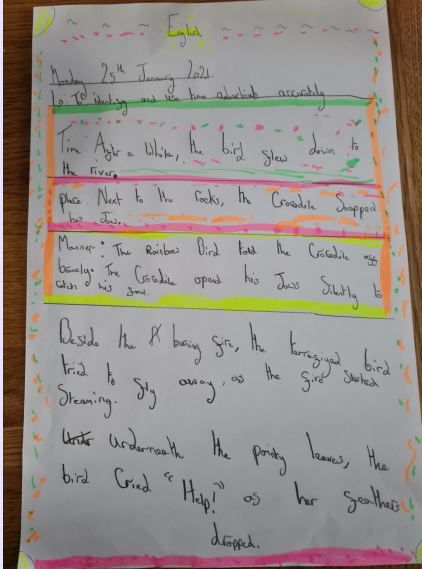 English
Monday 25th January 2021
Lo: To identify and use time adverbials accurately
Time After a While, the bird flew down to
the river.
place Next to the rocks, the Crocodile Snapped
his Jaws.
Manner: The Rainbow Bird told the Crocodile off
bravely. The Crocodile opend his Jaws Silently to
catch his food.
Beside the burning fire, the terrafiyed bird
tried to fly away, as the fire started
Steaming.
underneath the pointy leaves, the
bird Cried "Help!" as her feathers
dropped.